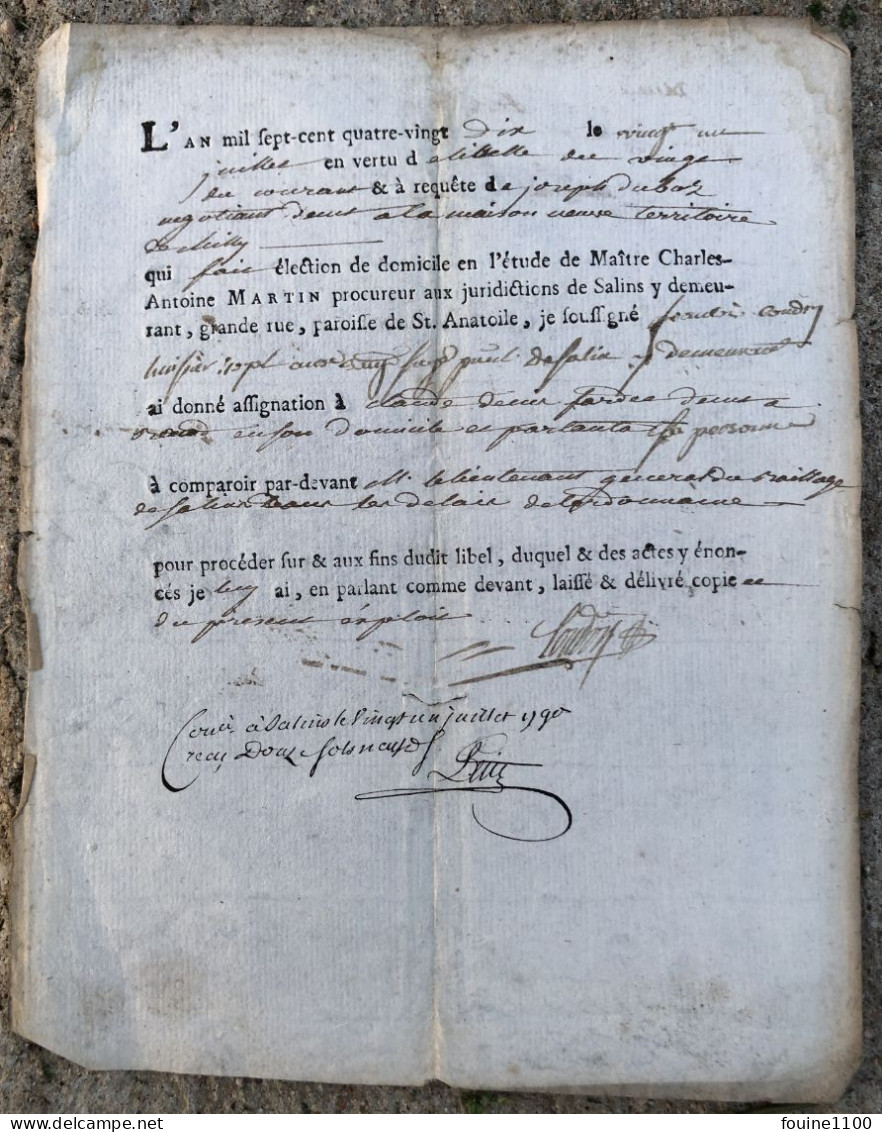 L'AN mil sept-cent quatre-vingt dix le vingt un
juillet en vertu d du vingt
du courant & à requête de joseph duboz
negotiant demt a la maison neuve territoire
de
qui fait élection de domicile en l'étude de Maître Charles-
Antoine MARTIN procureur aux juridictions de Salins y demeu-
rant, grande rue, paroisse de St. Anatoile, je soussigné
de Salin y demeurant
ai donné assignation à claude denis demt a
en son domicile et parlant a sa personne
à comparoir par-devant M. le lieutenant general du Baillage
de Salin dans les delais de l'ordonnance
pour procéder sur & aux fins dudit libel, duquel & des actes y énon-
cés je luy ai, en parlant comme devant, laissé & délivré copie et
du present exploit
à Salins le vingt un juillet 1790
recu Douze sols
Delcampe.net
fouine1100